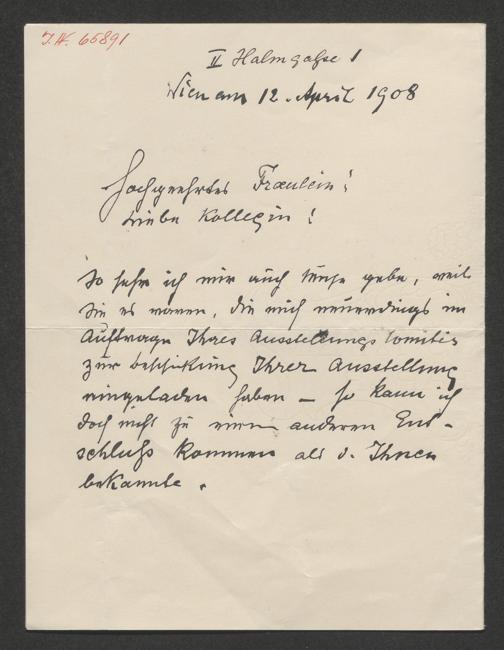 J.N. 65891
II Halmgasse 1
Wien am 12. April 1908
Hochgeehrtes Fräulein!
Liebe Kollegin!
So sehr ich mir auch Mühe gebe, weil
Sie es waren, die mich neuerdings im
Auftrage Ihres Ausstellungscomités
zur Beschickung Ihrer Ausstellung
eingeladen haben – so kann ich
doch nicht zu einem anderen Ent-
schluss kommen als d. Ihnen
bekannte.